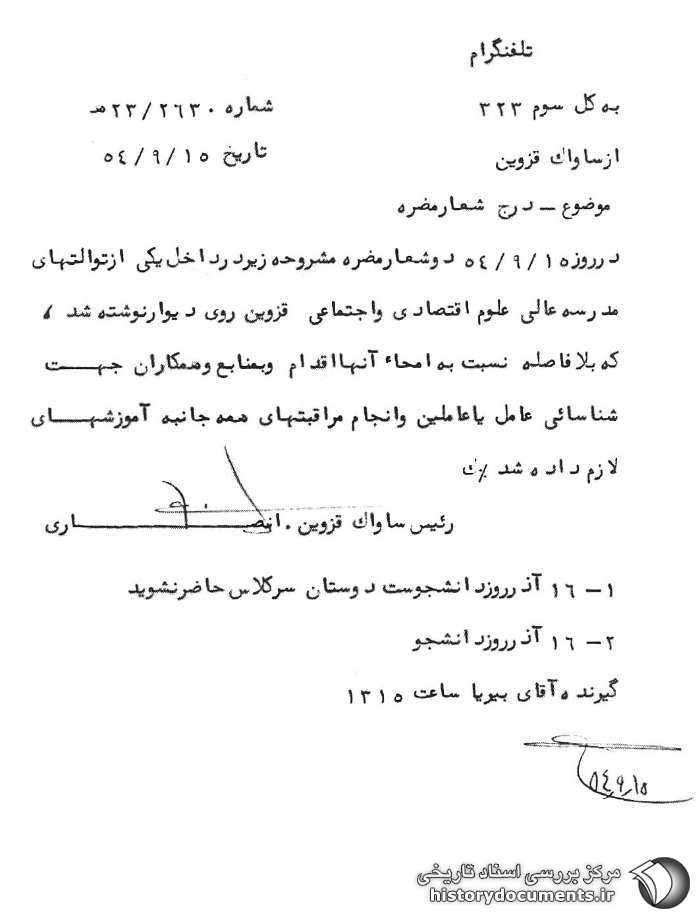 تلفنگرام
به کل سوم ۳۲۳
شماره ۲۳/۲٦۳۰هـ
از ساواك قزوین
تاریخ ٥٤/۹/۱٥
موضوع ـ درج شعار مضره
در روز ٥٤/۹/۱٥ دو شعار مضره مشروحه زیر در داخل یکی از توالتهای
مدرسه عالی علوم اقتصادی و اجتماعی قزوین روی دیوار نوشته شد ،
که بلافاصله نسبت به امحاء آنها اقدام و بمنابع و همکاران جهـت
شناسائی عامل یا عاملین و انجام مراقبتهای همه جانبه آموزشهـای
لازم داده شد ٪ك
رئیس ساواك قزوین . انصـاری
۱ـ ۱٦ آذر روز دانشجوست دوستان سر کلاس حاضر نشوید
۲ـ ۱٦ آذر روز دانشجو
گیرنده آقای بیریا ساعت ۱۳۱٥
٥٤/۹/۱٥
مرکز بررسی اسناد تاریخی
historydocuments.ir